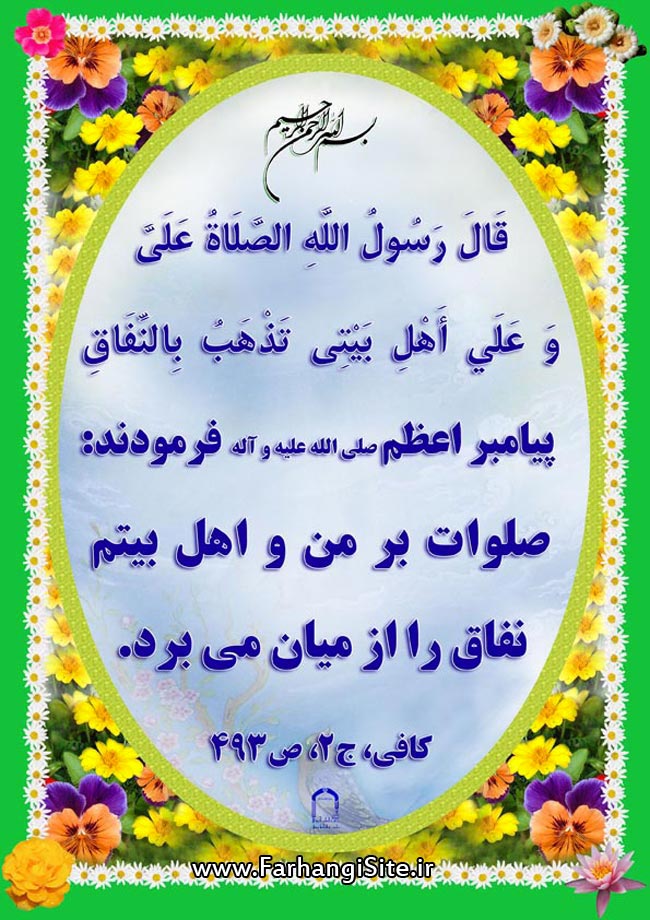 بسم الله الرحمن الرحیم
قَالَ رَسُولُ اللَّهِ الصَّلَاةُ عَلَیَّ
وَ عَلَي أَهْلِ بَيْتِی تَذْهَبُ بِالنِّفَاقِ
پیامبر اعظم صلی الله علیه و آله فرمودند:
صلوات بر من و اهل بیتم
نفاق را از میان می برد.
کافی، ج۲، ص۴۹۳
www.FarhangiSite.ir